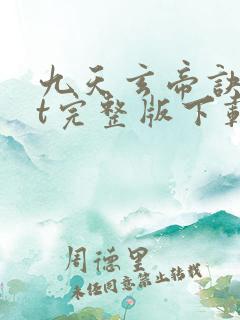 九天玄帝訣
t完整版下載
周德里
未经同意禁止转载